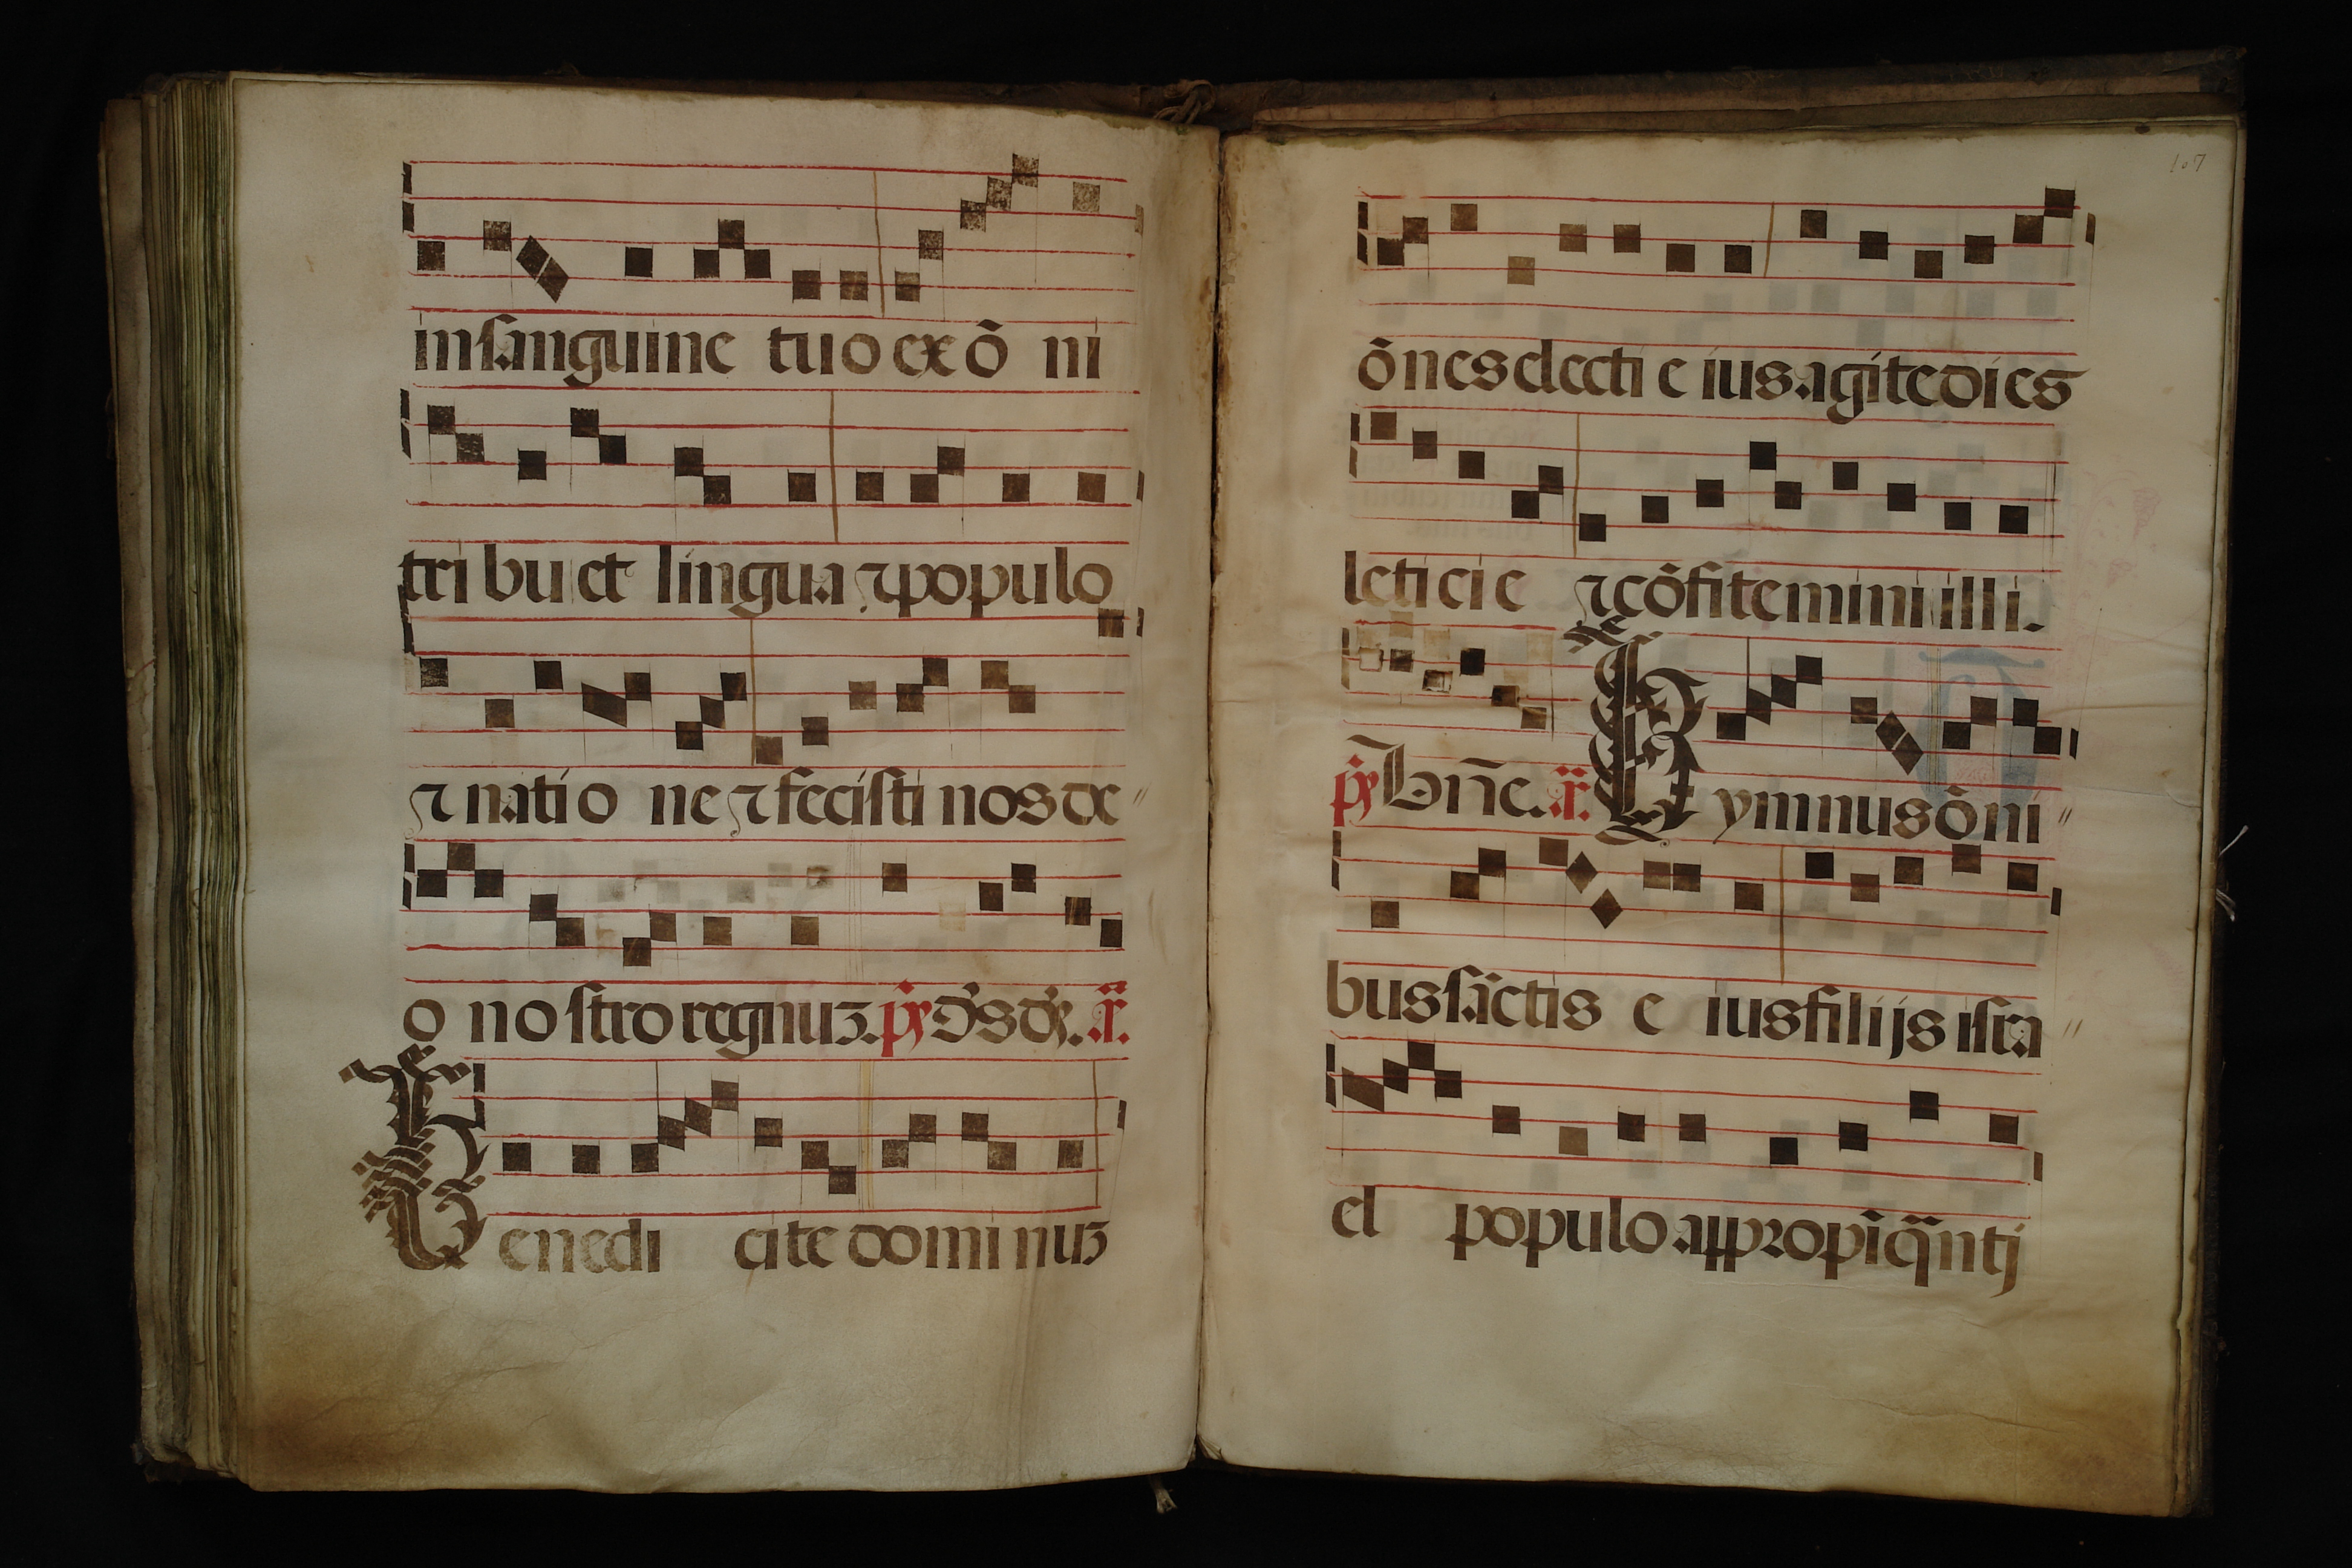 in sanguine tuo ex õ ni
tri bu et lingua ⁊ populo
⁊ natio ne ⁊ fecisti nos de //
o no stro regnuʒ. p̃s d̃s dʒ. ã.
Benedi cite dominuʒ
107
õnes electi e ius agite dies
leticie ⁊ cõfitemini illi.
p̃s Bñe. ã. Hymnus õni //
bus sãctis e ius filijs isra //
el populo appropĩq̃nti